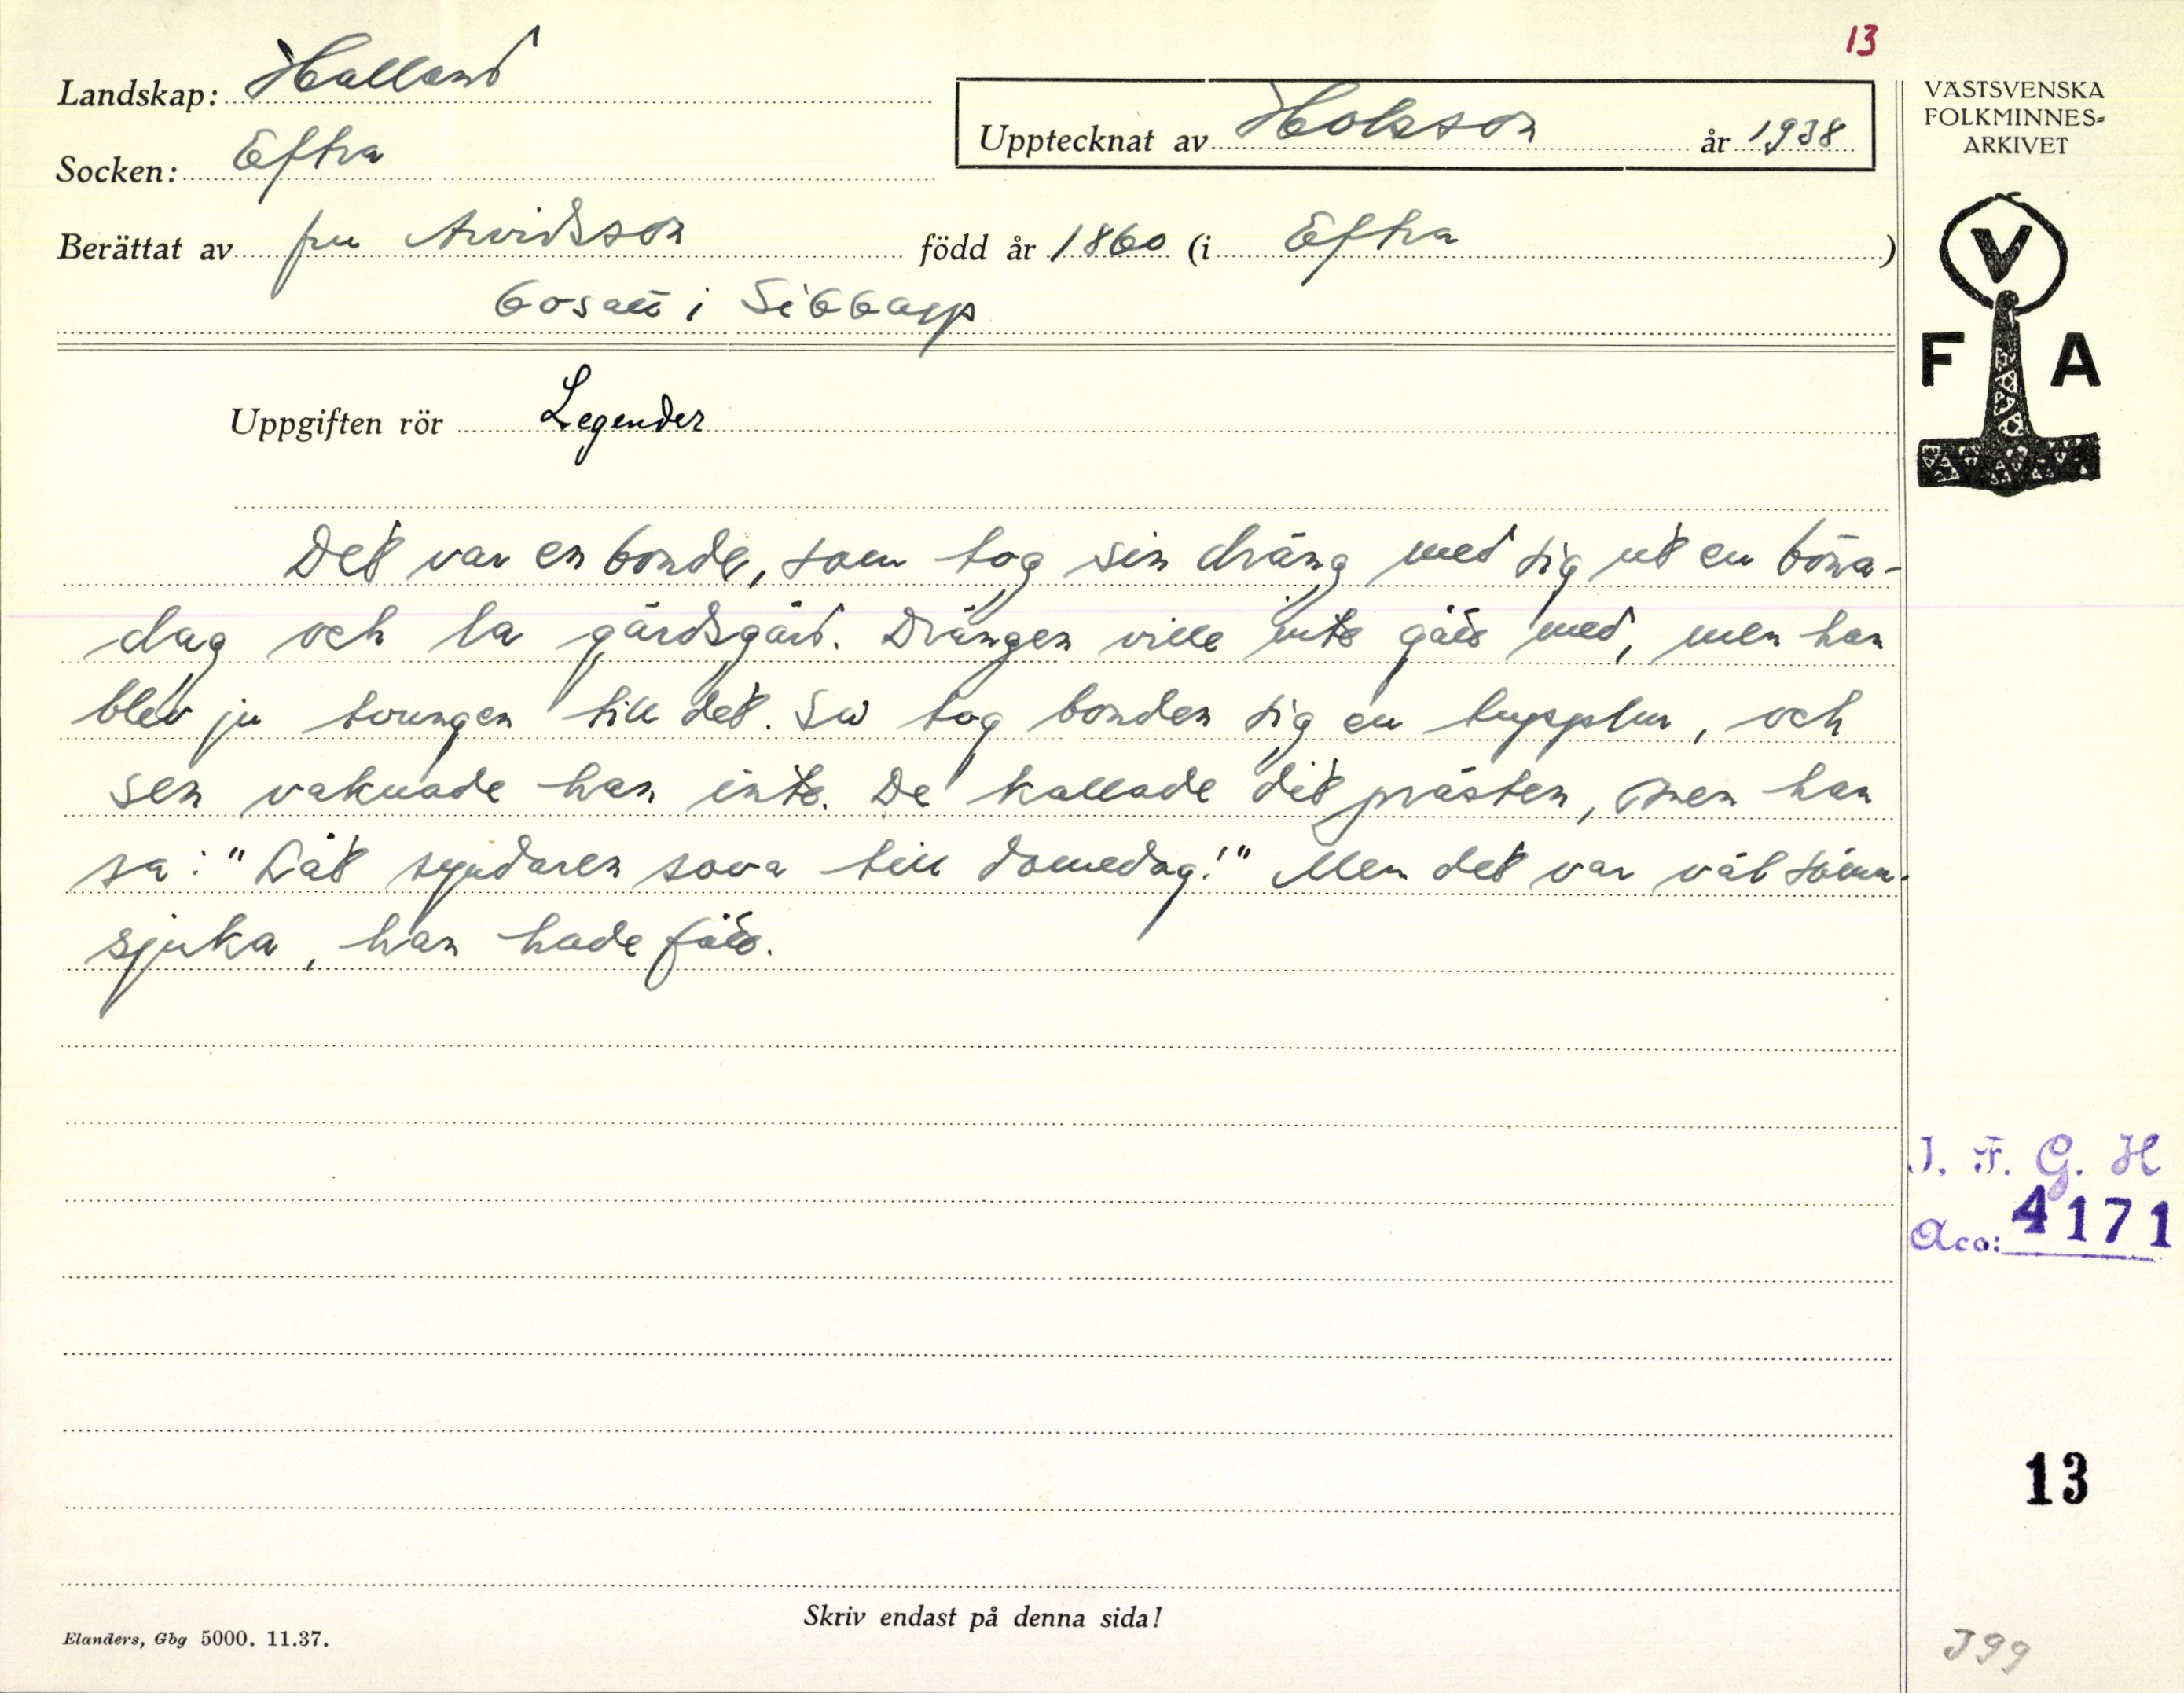 13
Landskap: Halland
Upptecknat av Holsson år 1938
Socken: Eftra
Berättat av fru Arvidsson född år 1860 (i Eftra )
bosatt i Sibbarp
Uppgiften rör Legender
Det var en bonde, som tog sin dräng med sig ut en böna-
dag och la gärdsgård. Drängen ville inte gått med, men han
blev ju tvungen till det. Så tog bonden sig en tupplur, och
sen vaknade han inte. De kallade dit prästen, men han
sa: "Låt syndaren sova till domedag!" Men det var väl sömn-
sjuka, han hade fått.
Skriv endast på denna sida!
Elanders, Gbg 5000. 11.37.
VÄSTSVENSKA
FOLKMINNES-
ARKIVET
V
F A
I. F. G. H
Acc: 4171
13
J99